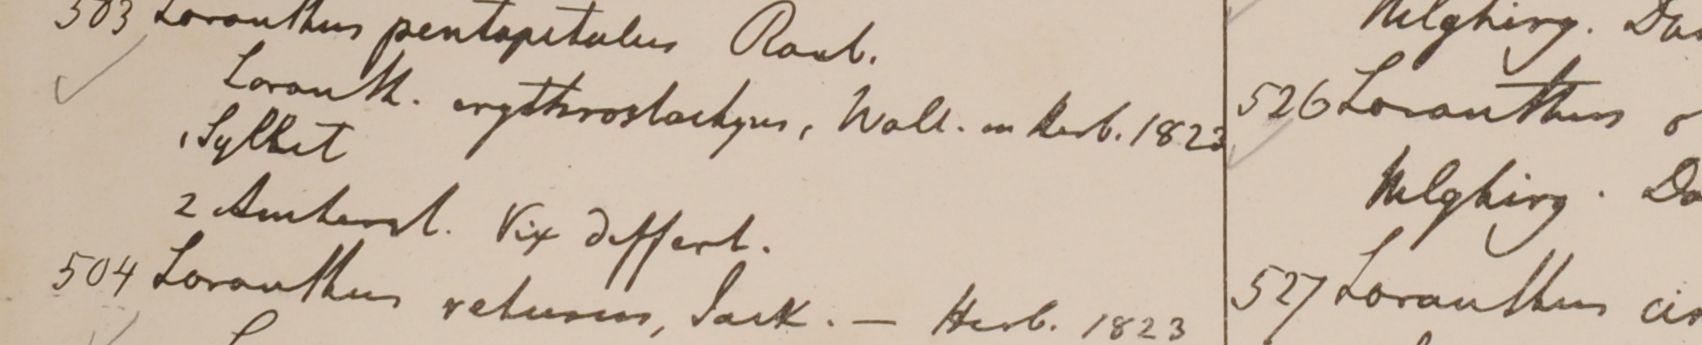 503 Loranthus pentapetalus Roxb.
Loranth. erythrostachyus, Wall. in herb. 1823
1 Sylhet
2 Amherst. Vix differt.
504 Loranthus retusus, Jack. — Herb. 1823
Nilghiry.
526 Loranthus
Nilghiry.
527 Loranthus